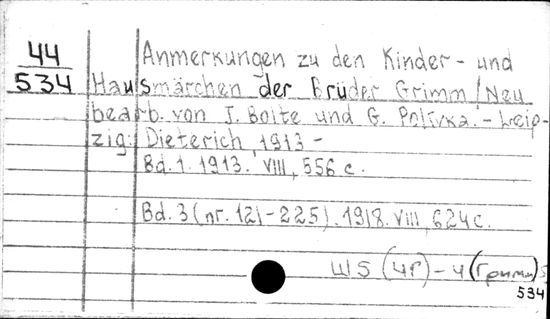 44
534
Anmerkungen zu den Kinder- und
Hausmärchen der Brüder Grimm/Neu
bearb. von J. Bolte und G. Polivka. - Leip-
zig: Dieterich, 1913 -
Bd. 1. 1913. VIII, 556 c.
Bd. 3 (nr. 121-225). 1918. VIII, 624 c.
Ш5(4Г)-4(Гримм)
534